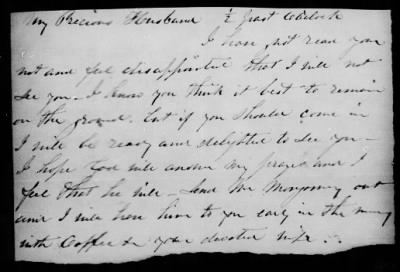 My Precious Husband ½ past O'clock
I have just read your
note and feel disappointed that I will not
see you - I know you think it best to remain
on the ground. but if you should come in
I will be ready and delighted to see you -
I hope God will answer my prayer and I
feel that he will - Send Mr Montgomery out
and I will have him to you early in the morng
with Coffee &c your devoted wife